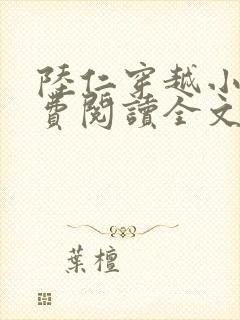 陸仁穿越小
費閱讀全文
葉檀